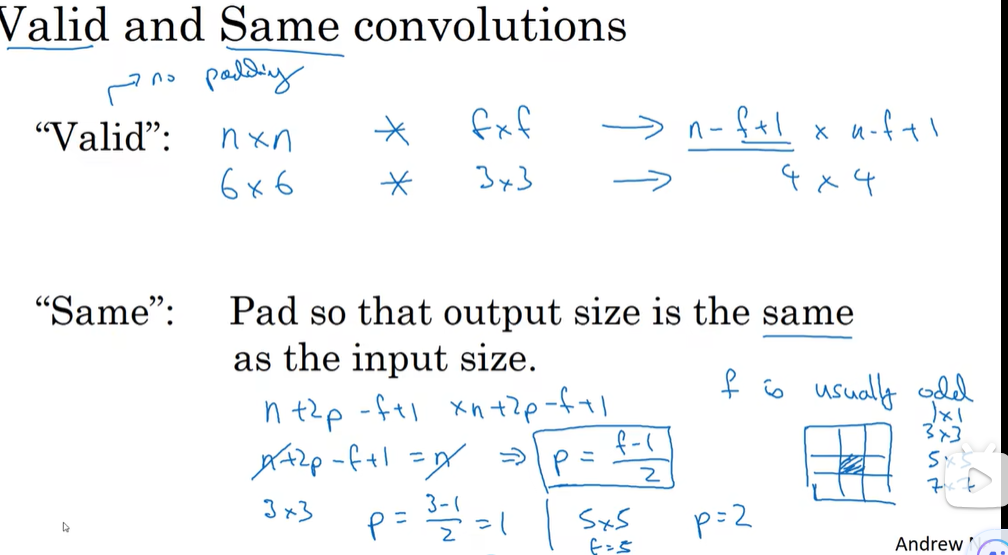 Valid and Same convolutions
no padding
“Valid”: n×n * f×f → n-f+1 × n-f+1
6×6 * 3×3 → 4×4
“Same”: Pad so that output size is the same
as the input size.
n+2p-f+1 × n+2p-f+1
n+2p-f+1 = n ⇒ p = (f-1)/2
3×3 p = (3-1)/2 = 1 | 5×5 p=2
f=5
f is usually odd
1×1
3×3
5×5
7×7
Andrew